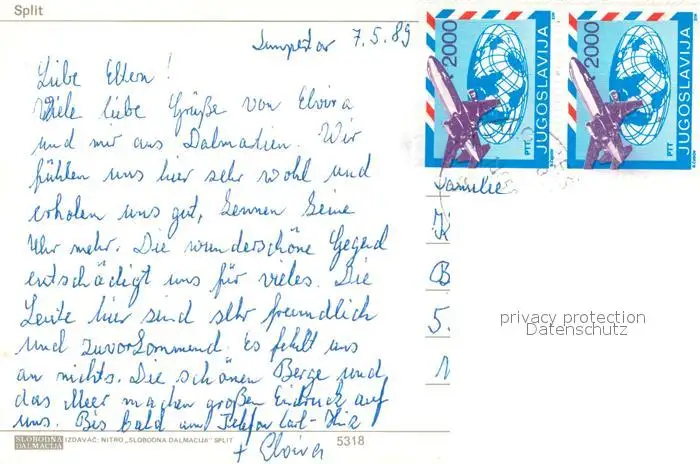 Split
7.5.89
Liebe Eltern!
Viele liebe Grüße von Elvira
und mir aus Dalmatien. Wir
fühlen uns hier sehr wohl und
erholen uns gut, kennen keine
Uhr mehr. Die wunderschöne Gegend
entschädigt uns für vieles. Die
Leute hier sind sehr freundlich
und zuvorkommend. Es fehlt uns
an nichts. Die schönen Berge und
das Meer machen großen Eindruck auf
uns. Bis bald am Telefon Karl-Heinz
+ Elvira
2000 JUGOSLAVIJA PTT
2000 JUGOSLAVIJA PTT
Familie
K
B
5.
1
privacy protection
Datenschutz
SLOBODNA DALMACIJA IZDAVAČ: NITRO „SLOBODNA DALMACIJA" SPLIT 5318